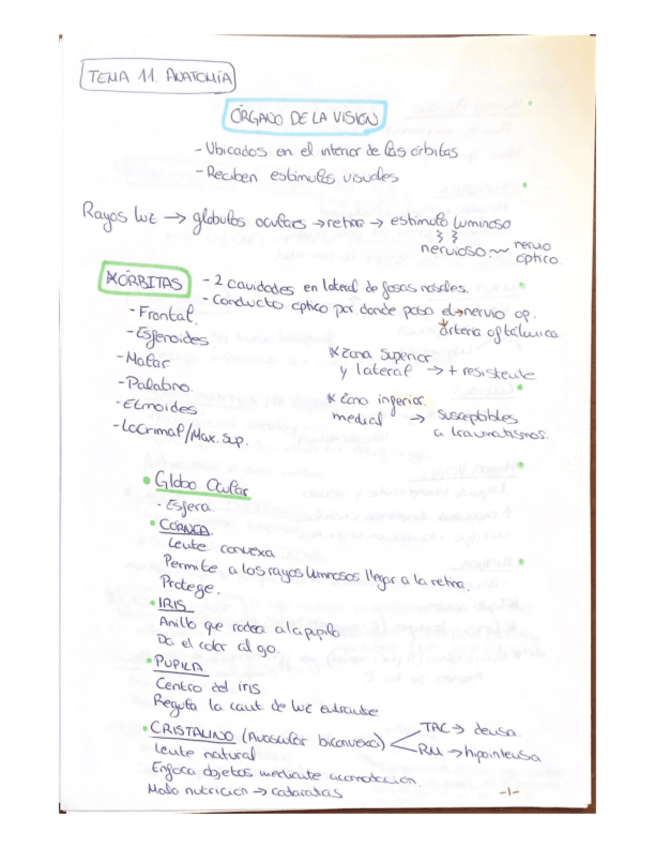 TEMA 11. ANATOMÍA
ÓRGANO DE LA VISIÓN
- Ubicados en el interior de las órbitas
- Reciben estímulos visuales
Rayos luz → globulos oculares → retina → estímulo luminoso
nervioso nervio óptico.
*ÓRBITAS
- 2 cavidades en lateral de fosas nasales.
- Conducto optico por donde pasa el → nervio op.
arteria oftálmica
- Frontal.
- Esfenoides.
- Malar
- Palatino.
- Etmoides.
- Lacrimal/Max. sup.
* Zona superior
y lateral → + resistente
* Zona inferior.
medial → susceptibles
a traumatismos.
• Globo Ocular
- Esfera.
• CÓRNEA.
Lente convexa
Permite a los rayos luminosos llegar a la retina.
Protege.
• IRIS
Anillo que rodea a la pupila
Da el color al ojo.
• PUPILA
Centro del iris
Regula la cant de luz entrante
• CRISTALINO (Avascular biconvexo) TAC → densa
RM → hipointensa
Lente natural
Enfoca objetos mediante acomodación.
Mala nutricion → cataratas
-1-